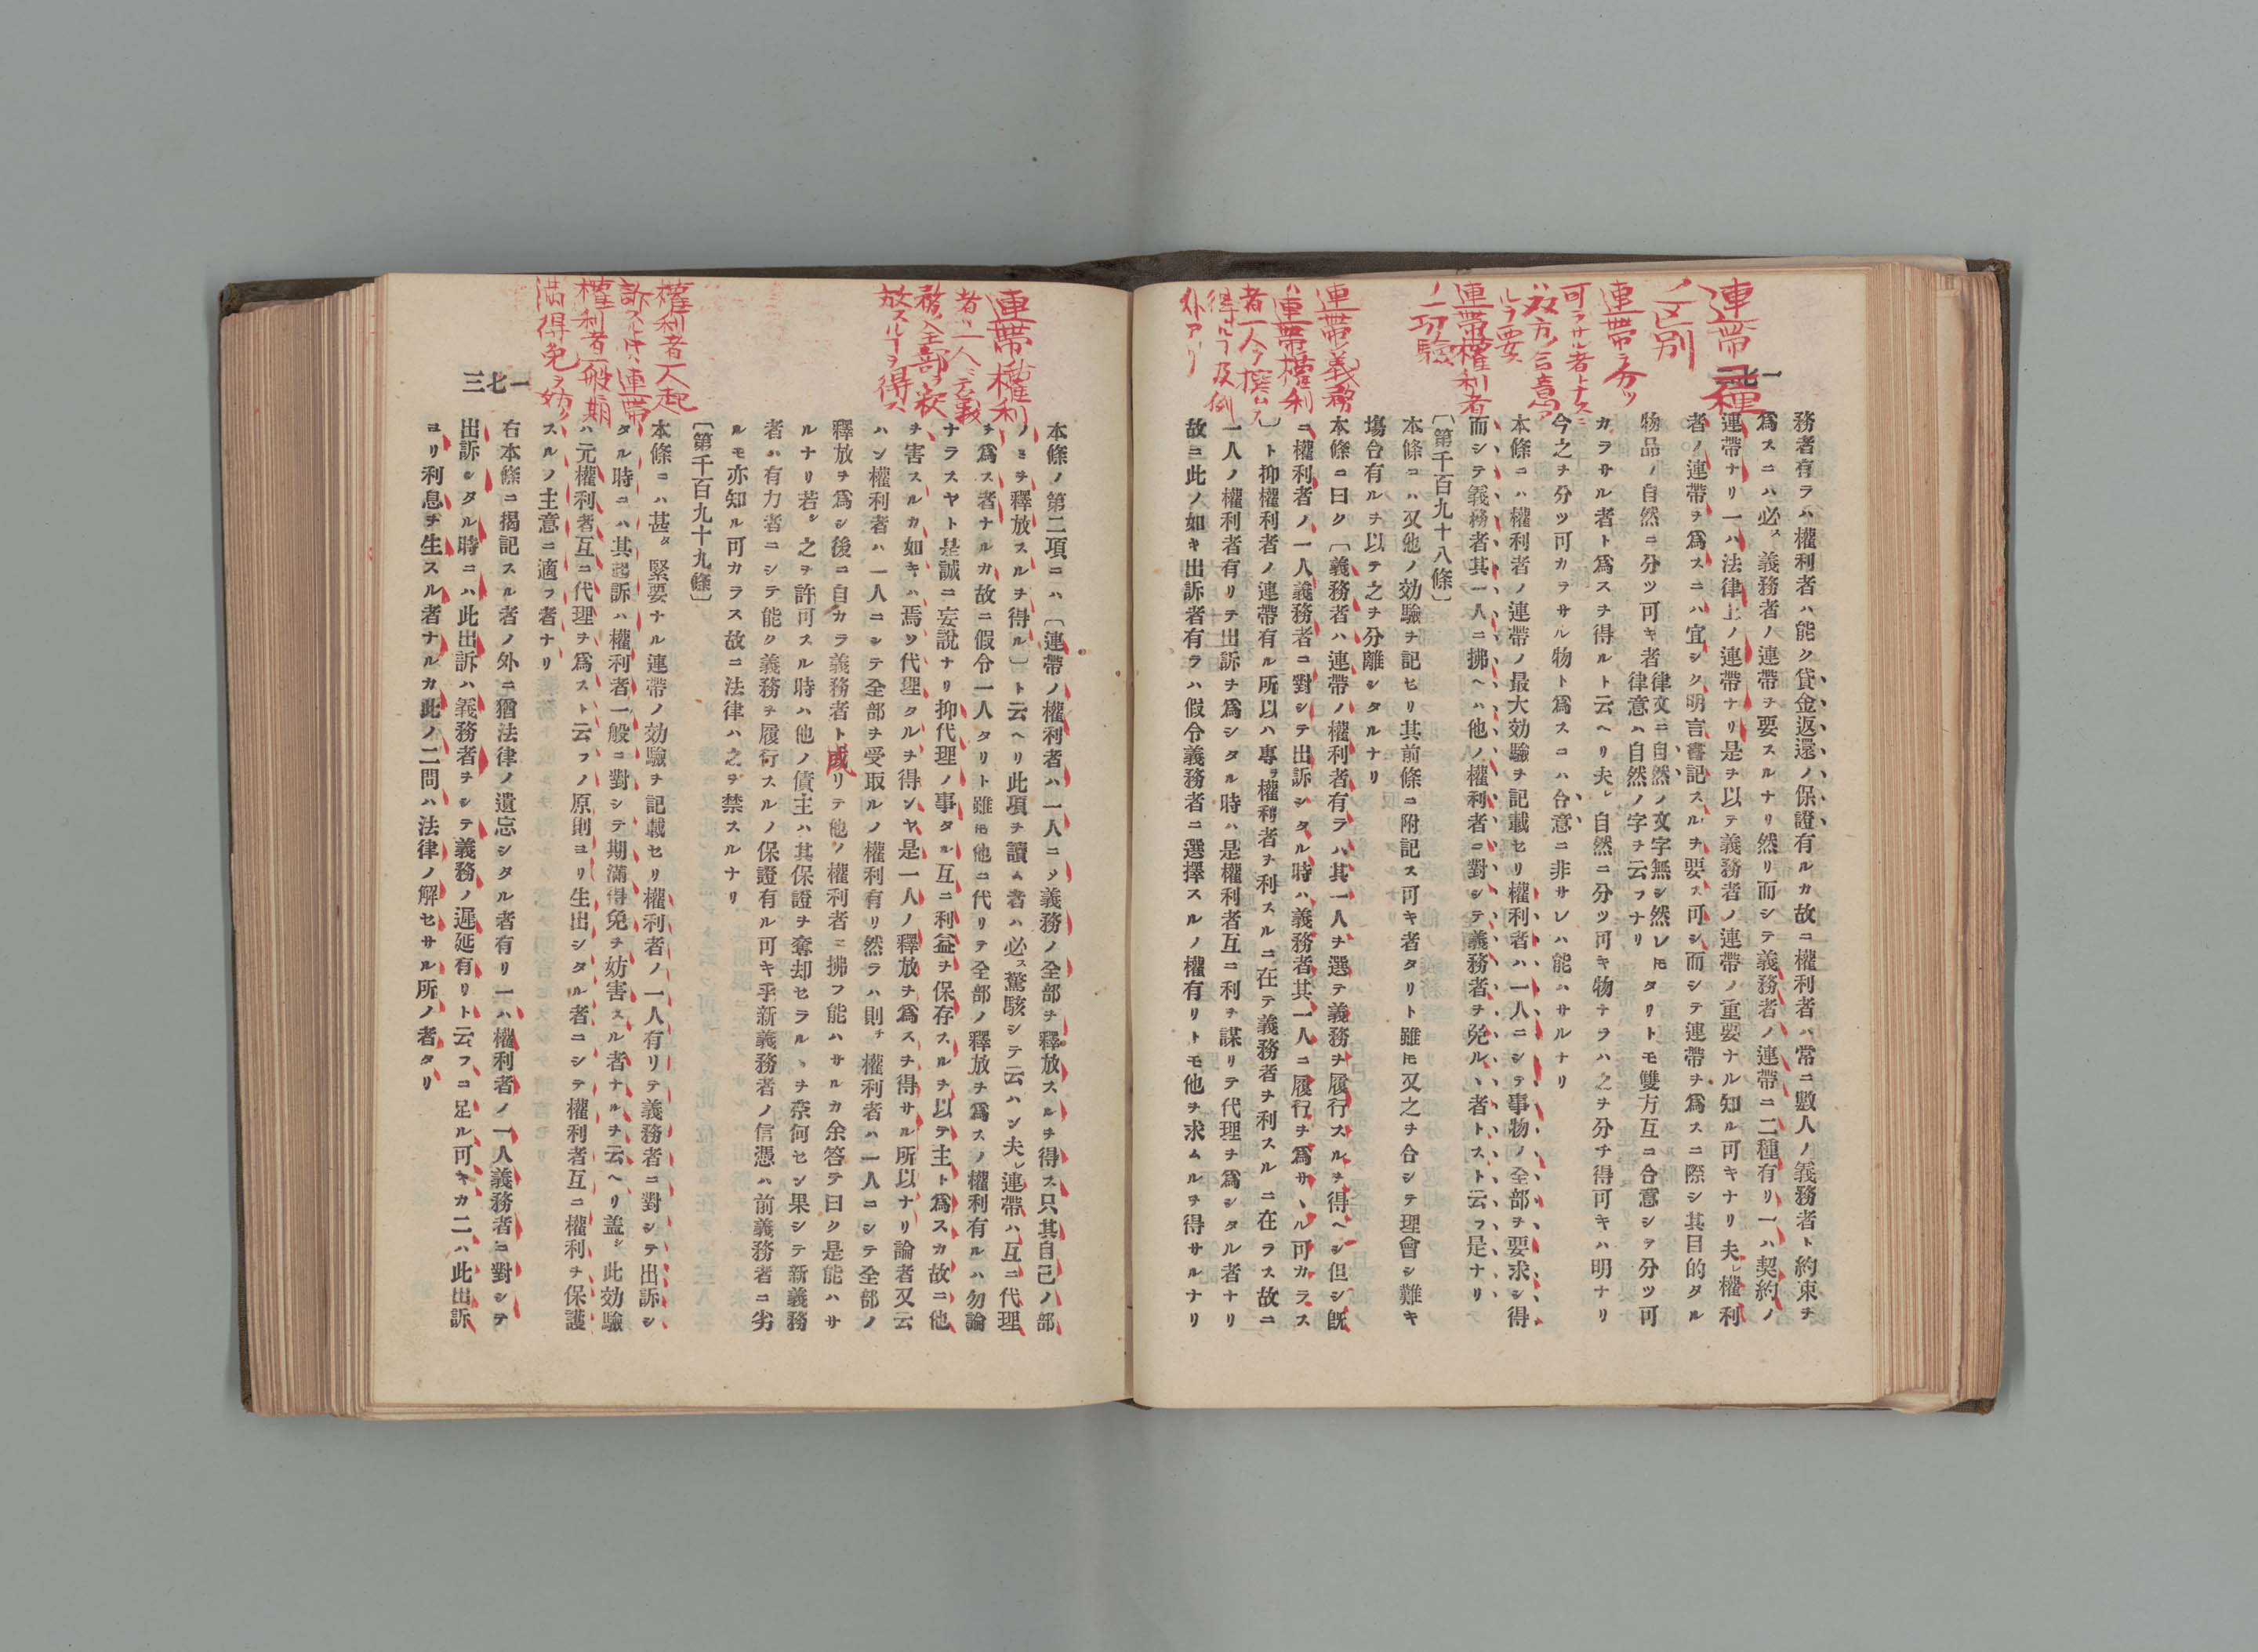 連帶二種
ノ区別
連帶ヲ分ツ
可ラサル者トナス
ハ双方ノ合意ア
ルヲ要ス
連帶權利者
ノ一功驗
連帶ノ義務
連帶ノ權利
者一人ヲ撰ムヿ
得ルヿ及例
外アリ
一七二
務者有ラハ權利者ハ能ク貸金返還ノ保證有ルカ故ニ權利者ハ常ニ數人ノ義務者ト約束ヲ
爲スニハ必ス義務者ノ連帶ヲ要スルナリ然リ而シテ義務者ノ連帶ニ二種有リ一ハ契約ノ
連帶ナリ一ハ法律上ノ連帶ナリ是ヲ以テ義務者ノ連帶ノ重要ナル知ル可キナリ夫レ權利
者ノ連帶ヲ爲スニハ宜シク明言書記スルヲ要ス可シ而シテ連帶ヲ爲スニ際シ其目的タル
物品ノ自然ニ分ツ可キ者律文ニ自然ノ文字無シ然レ𪜈律意ハ自然ノ字ヲ云フナリタリトモ雙方互ニ合意シテ分ツ可
カラサル者ト爲スヲ得ルト云ヘリ夫レ自然ニ分ツ可キ物ナラハ之ヲ分チ得可キハ明ナリ
今之ヲ分ツ可カラサル物ト爲スニハ合意ニ非サレハ能ハサルナリ
本條ニハ權利者ノ連帶ノ最大効驗ヲ記載セリ權利者ハ一人ニシテ事物ノ全部ヲ要求シ得
而シテ義務者其一人ニ拂ヘハ他ノ權利者ニ對シテ義務者ヲ免ルヽ者トスト云フ是ナリ
〔第千百九十八條〕
本條ニハ又他ノ効驗ヲ記セリ其前條ニ附記ス可キ者タリト雖𪜈又之ヲ合シテ理會シ難キ
塲合有ルヲ以テ之ヲ分離シタルナリ
本條ニ曰ク〔義務者ハ連帶ノ權利者有ラハ其一人ヲ選テ義務ヲ履行スルヲ得ヘシ但シ既
ニ權利者ノ一人義務者ニ對シテ出訴シタル時ハ義務者其一人ニ履行ヲ爲サヽル可カラス
〕ト抑權利者ノ連帶有ル所以ハ專ヲ權利者ヲ利スルニ在テ義務者ヲ利スルニ在ラス故ニ
一人ノ權利者有リテ出訴ヲ爲シタル時ハ是權利者互ニ利ヲ謀リテ代理ヲ爲シタル者ナリ
故ニ此ノ如キ出訴者有ラハ假令義務者ニ選擇スルノ權有リトモ他ヲ求ムルヲ得サルナリ
連帶ノ權利
者ハ一人ニテ義
務ノ全部ヲ釈
放スルヿヲ得ス
權利者一人起
訴スル時ハ連帶
權利者一般ノ期
満得免ヲ妨ク
一七三
本條ノ第二項ニハ〔連帶ノ權利者ハ一人ニソ義務ノ全部ヲ釋放スルヲ得ス只其自己ノ部
ノミヲ釋放スルヲ得ル〕ト云ヘリ此項ヲ讀ム者ハ必ス驚駭シテ云ハン夫レ連帶ハ互ニ代理
ヲ爲ス者ナルカ故ニ假令一人タリト雖𪜈他ニ代リテ全部ノ釋放ヲ爲スノ權利有ルハ勿論
ナラスヤト是誠ニ妄說ナリ抑代理ノ事タル互ニ利益ヲ保存スルヲ以テ主ト爲スカ故ニ他
ヲ害スルカ如キハ焉ソ代理タルヲ得ンヤ是一人ノ釋放ヲ爲スヲ得サル所以ナリ論者又云
ハン權利者ハ一人ニシテ全部ヲ受取ルノ權利有リ然ラハ則チ權利者ハ一人ニシテ全部ノ
釋放ヲ爲シ後ニ自カラ義務者ト成リテ他ノ權利者ニ拂フ能ハサルカ余答テ曰ク是能ハサ
ルナリ若シ之ヲ許可スル時ハ他ノ債主ハ其保證ヲ奪却セラルヽヲ奈何セン果シテ新義務
者ハ有力者ニシテ能ク義務ヲ履行スルノ保證有ル可キ乎新義務者ノ信憑ハ前義務者ニ劣
ルモ亦知ル可カラス故ニ法律ハ之ヲ禁スルナリ
〔第千百九十九條〕
本條ニハ甚タ緊要ナル連帶ノ効驗ヲ記載セリ權利者ノ一人有リテ義務者ニ對シテ出訴シ
タル時ニハ其起訴ハ權利者一般ニ對シテ期滿得免ヲ妨害スル者ナルヲ云ヘリ盖シ此効驗
ハ元權利者互ニ代理ヲ爲スト云フノ原則ヨリ生出シタル者ニシテ權利者互ニ權利ヲ保護
スルノ主意ニ適フ者ナリ
右本條ニ揭記スル者ノ外ニ猶法律ノ遺忘シタル者有リ一ハ權利者ノ一人義務者ニ對シテ
出訴シタル時ニハ此出訴ハ義務者ヲシテ義務ノ遲延有リト云フニ足ル可キカ二ハ此出訴
ヨリ利息ヲ生スル者ナルカ此ノ二問ハ法律ノ解セサル所ノ者タリ